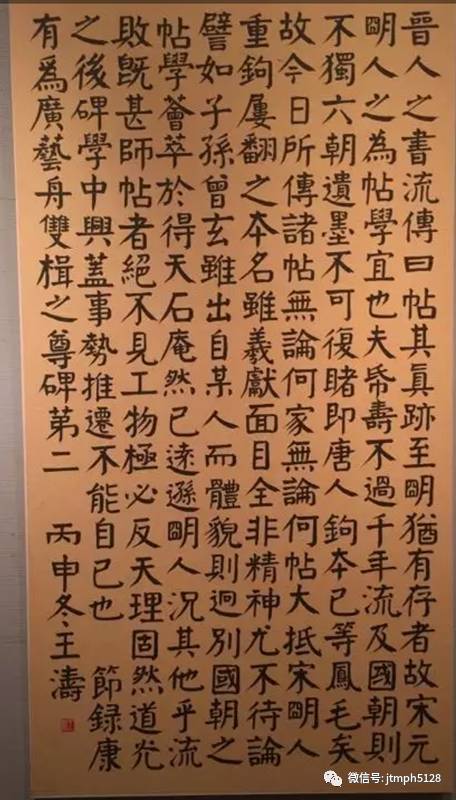 晉人之書流傳曰帖其眞跡至明猶有存者故宋元
明人之為帖學宜也夫帋壽不過千年流及國朝則
不獨六朝遺墨不可復睹即唐人鉤本已等鳳毛矣
故今日所傳諸帖無論何家無論何帖大抵宋明人
重鉤屢翻之本名雖羲獻面目全非精神尤不待論
譬如子孫曾玄雖出自某人而體貌則迥別國朝之
帖學薈萃於得天石庵然已遠遜明人況其他乎流
敗旣甚師帖者絕不見工物極必反天理固然道光
之後碑學中興蓋事勢推遷不能自已也 節録康
有爲廣藝舟雙楫之尊碑第二 丙申冬王濤
微信号: jtmph5128